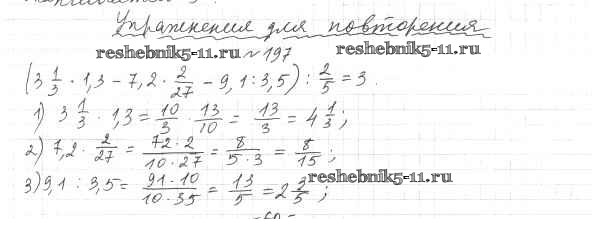 Упражнения для повторения
reshebnik5-11.ru № 197 reshebnik5-11.ru
(3 1/3 · 1,3 − 7,2 · 2/27 − 9,1 : 3,5) : 2/5 = 3.
1) 3 1/3 · 1,3 = 10/3 · 13/10 = 13/3 = 4 1/3;
2) 7,2 · 2/27 = 72·2/10·27 = 8/5·3 = 8/15;
3) 9,1 : 3,5 = 91·10/10·35 = 13/5 = 2 3/5;
reshebnik5-11.ru